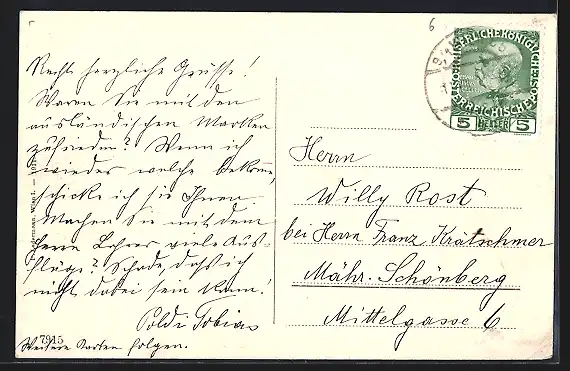 Recht herzliche Grüsse!
Waren Sie mit den
ausländischen Marken
zufrieden? Wenn ich
wieder welche bekomme,
schicke ich sie Ihnen.
Machen Sie mit dem
Herrn Lehrer viele Aus-
flüge? Schade, daß ich
nicht dabei sein kann!
Poldi Tobias
7915
Weitere Karten folgen.
6
5 HELLER 5
Herrn
Willy Rost
bei Herrn Franz Krätschmer
Mähr. Schönberg
Mittelgasse 6